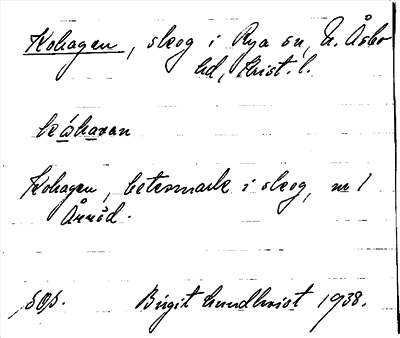 Kohagen, skog i Rya sn, N. Åsbo
hd, Krist. l.
kɷhavan
Kohagen, betesmark i skog, nr 1
Årröd.
sOs. Birgit Lundkvist 1938.